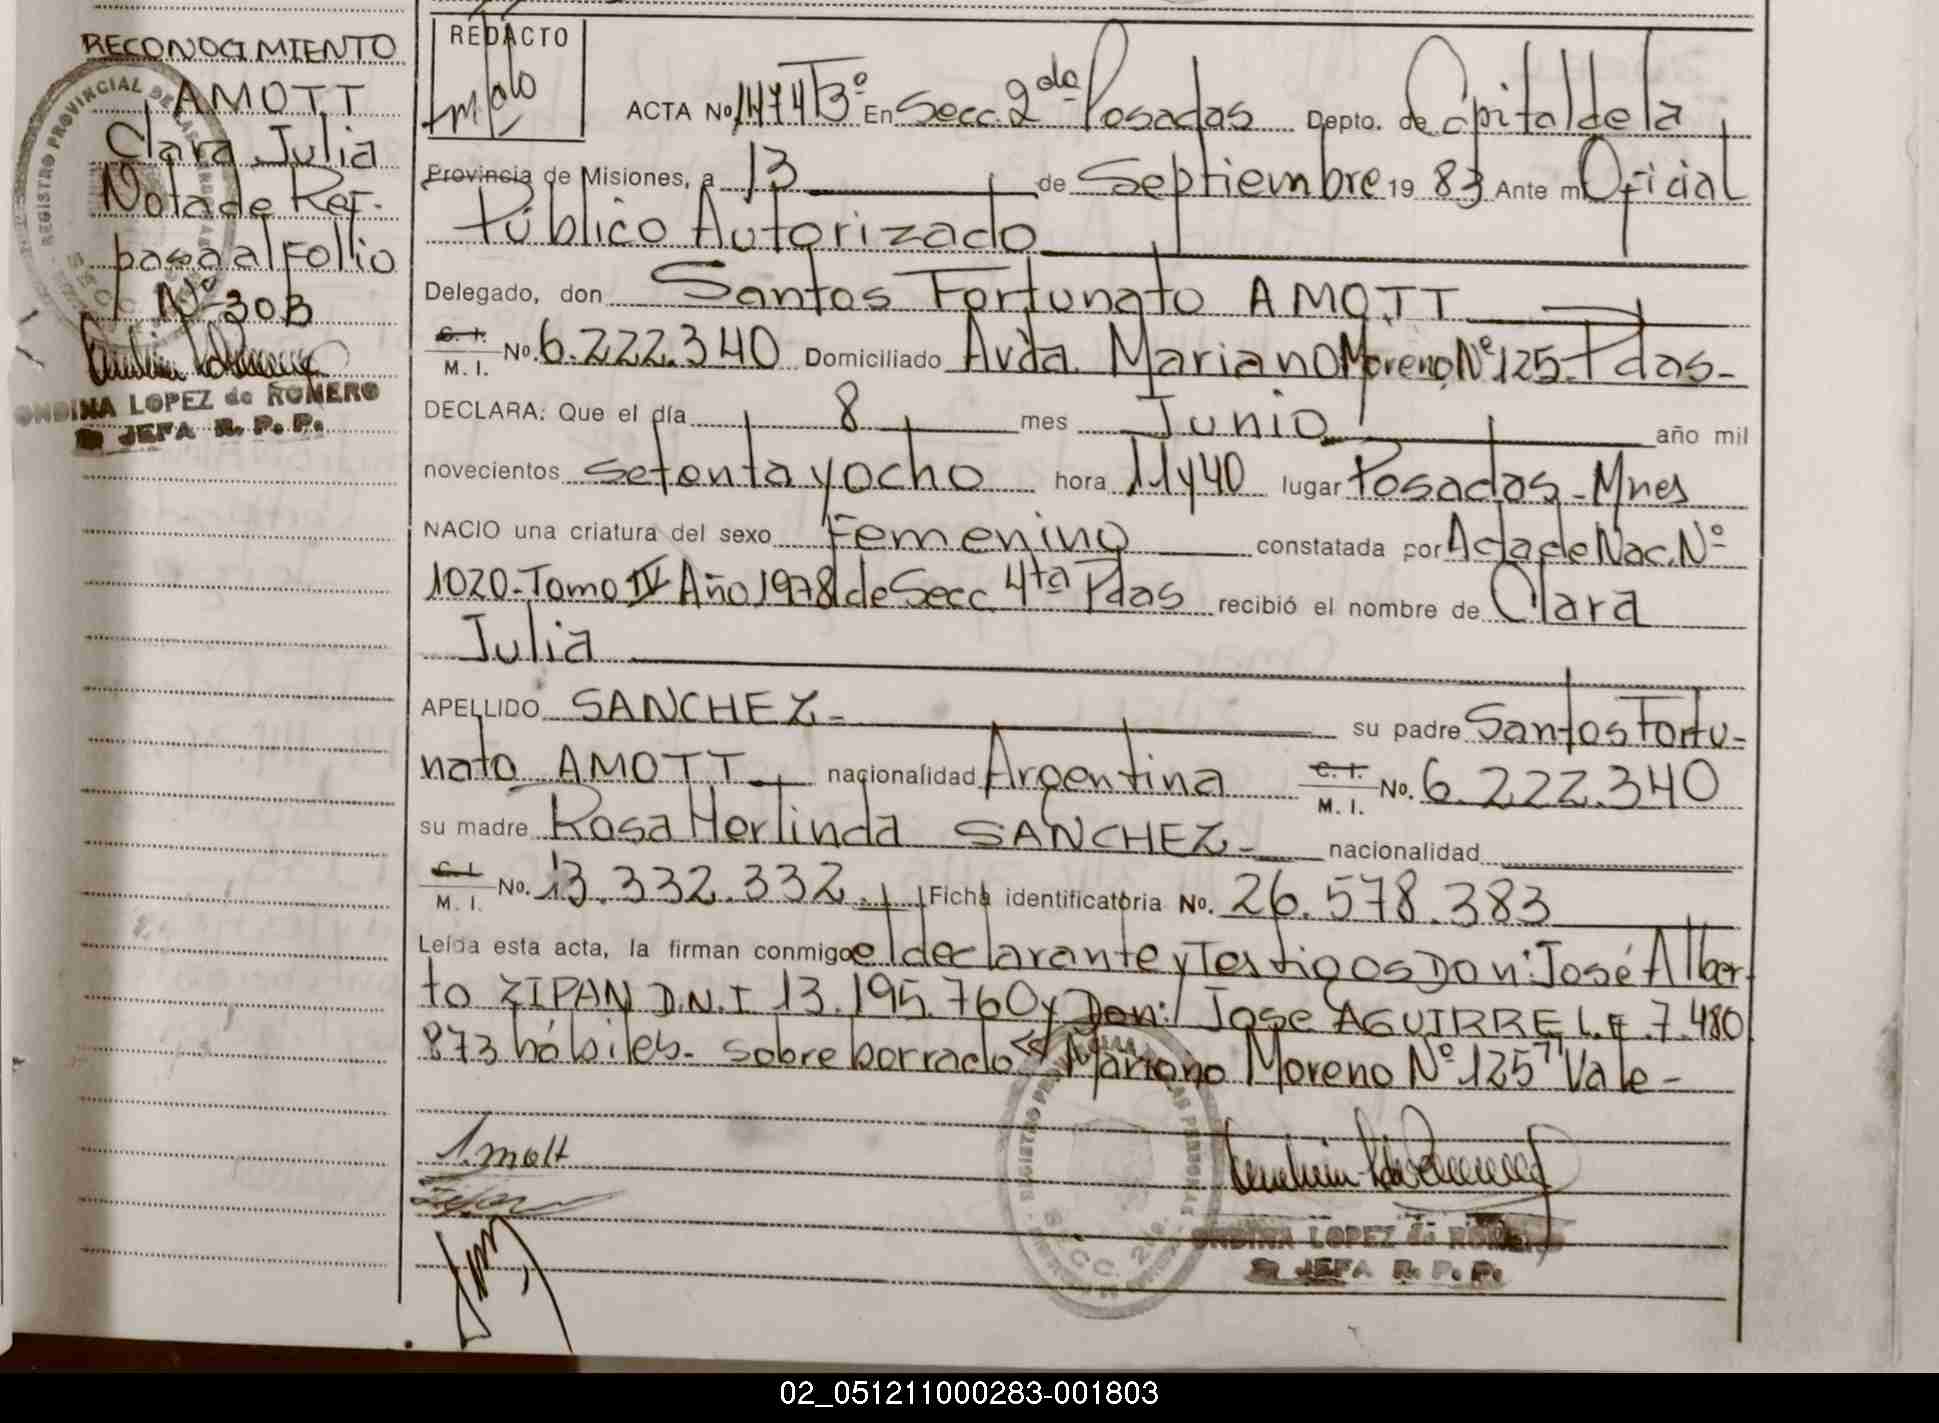 RECONOCIMIENTO
AMOTT
Clara Julia
Nota de Ref.
pasa al Folio
Nº 303
ONDINA LOPEZ de ROMERO
JEFA R. P. P.
REDACTO
ACTA No 1474 Tº 3º En Secc. 2da Posadas Depto. de Capital de la
Provincia de Misiones, a 13 de Septiembre 19 83 Ante mi Oficial
Público Autorizado
Delegado, don Santos Fortunato AMOTT
C. I. M. I. No. 6.222.340 Domiciliado Avda. Mariano Moreno Nº 125 - Pdas -
DECLARA: Que el día 8 mes Junio año mil
novecientos setenta y ocho hora 11 y 40 lugar Posadas - Mnes
NACIO una criatura del sexo Femenino constatada por Acta de Nac. Nº
1020 - Tomo IV Año 1978 de Secc. 4ta Pdas recibió el nombre de Clara
Julia
APELLIDO SANCHEZ - su padre Santos Fortu-
nato AMOTT nacionalidad Argentina C. I. M. I. No. 6.222.340
su madre Rosa Herlinda SANCHEZ - nacionalidad
C. I. M. I. No. 13.332.332. Ficha identificatoria No. 26.578.383
Leída esta acta, la firman conmigo el declarante y Testigos Don: José Alber-
to ZIPAN D.N.I 13.195.760 y Don: Jose AGUIRRE L.E. 7.480
873 hábiles - sobre borrado "Mariano Moreno Nº 125" Vale -
Amott
REGISTRO PROVINCIAL DE LAS PERSONAS
SECC. 2da.
ONDINA LOPEZ de ROMERO
JEFA R. P. P.
02_051211000283-001803